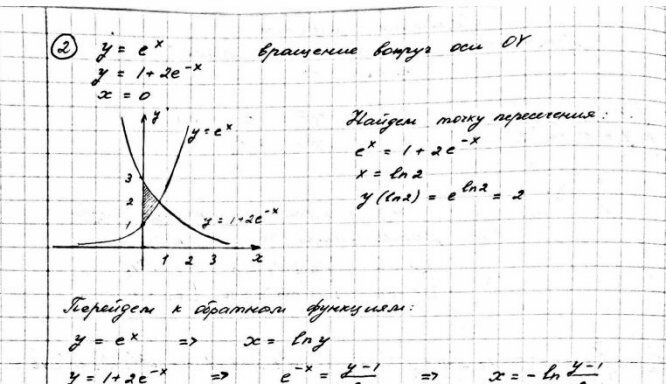 ② y = e^x вращение вокруг оси OY
y = 1 + 2e^-x
x = 0
y
y = e^x
3
2
1
y = 1 + 2e^-x
1 2 3 x
Найдем точку пересечения:
e^x = 1 + 2e^-x
x = ln 2
y(ln 2) = e^ln 2 = 2
Перейдем к обратным функциям:
y = e^x => x = ln y
y = 1 + 2e^-x => e^-x = y-1 => x = - ln y-1